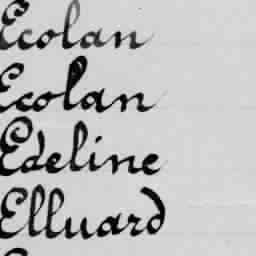 Ecolan
Ecolan
Edeline
Elluard